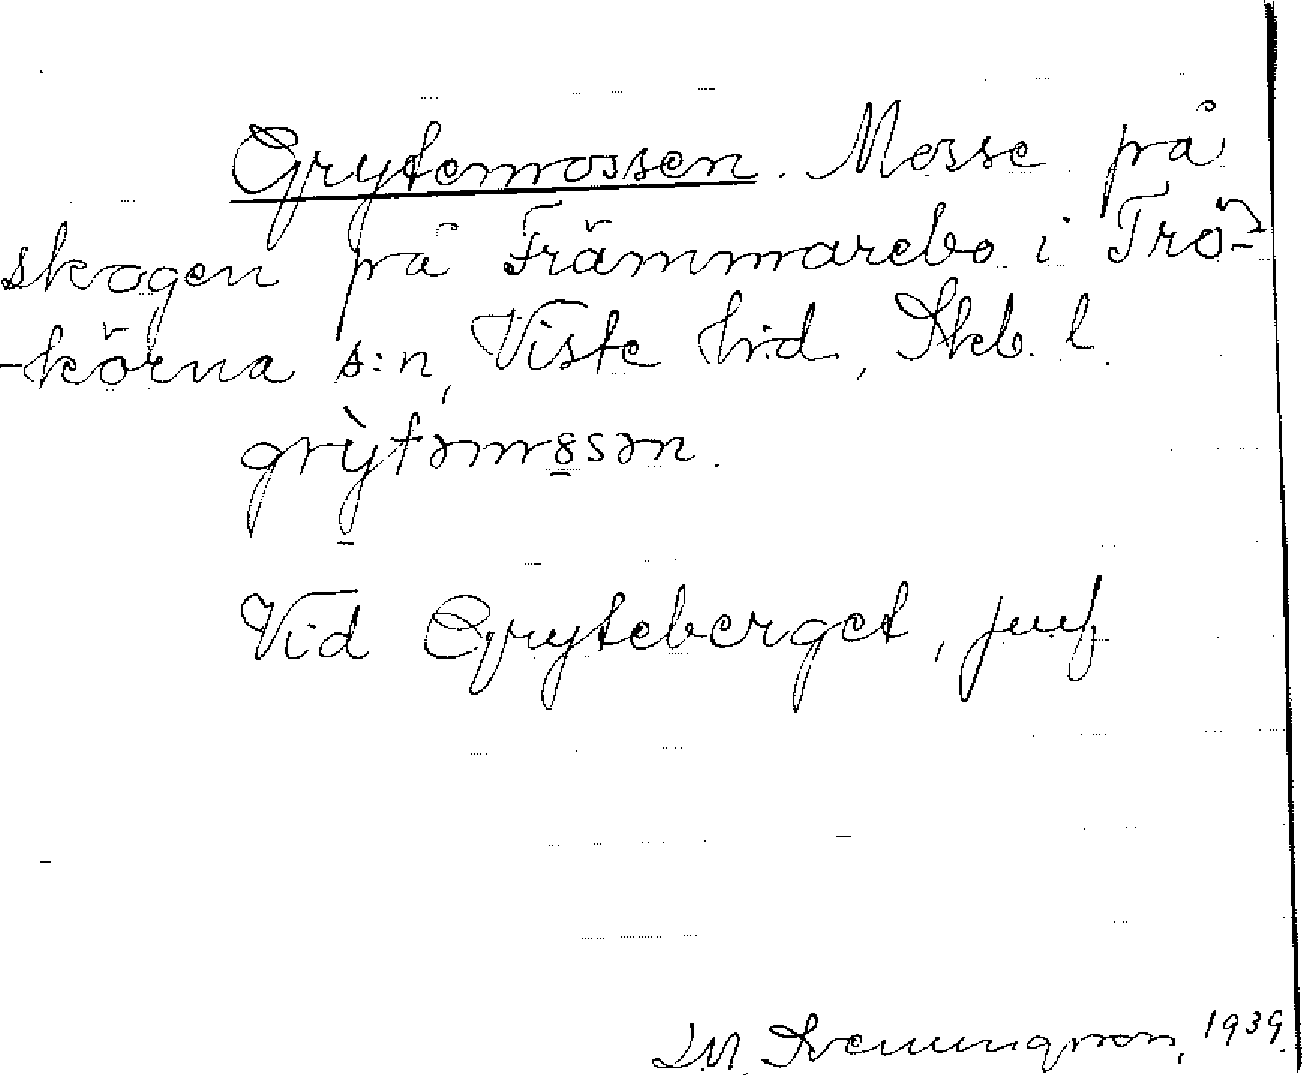 Grytemossen. Mosse på
skogen på Främmarebo i Trö-
-körna s:n, Viste hd, Skb. l.
grỳtəm8sən.
Vid Gryteberget, juf
Svenungsson, 1939.